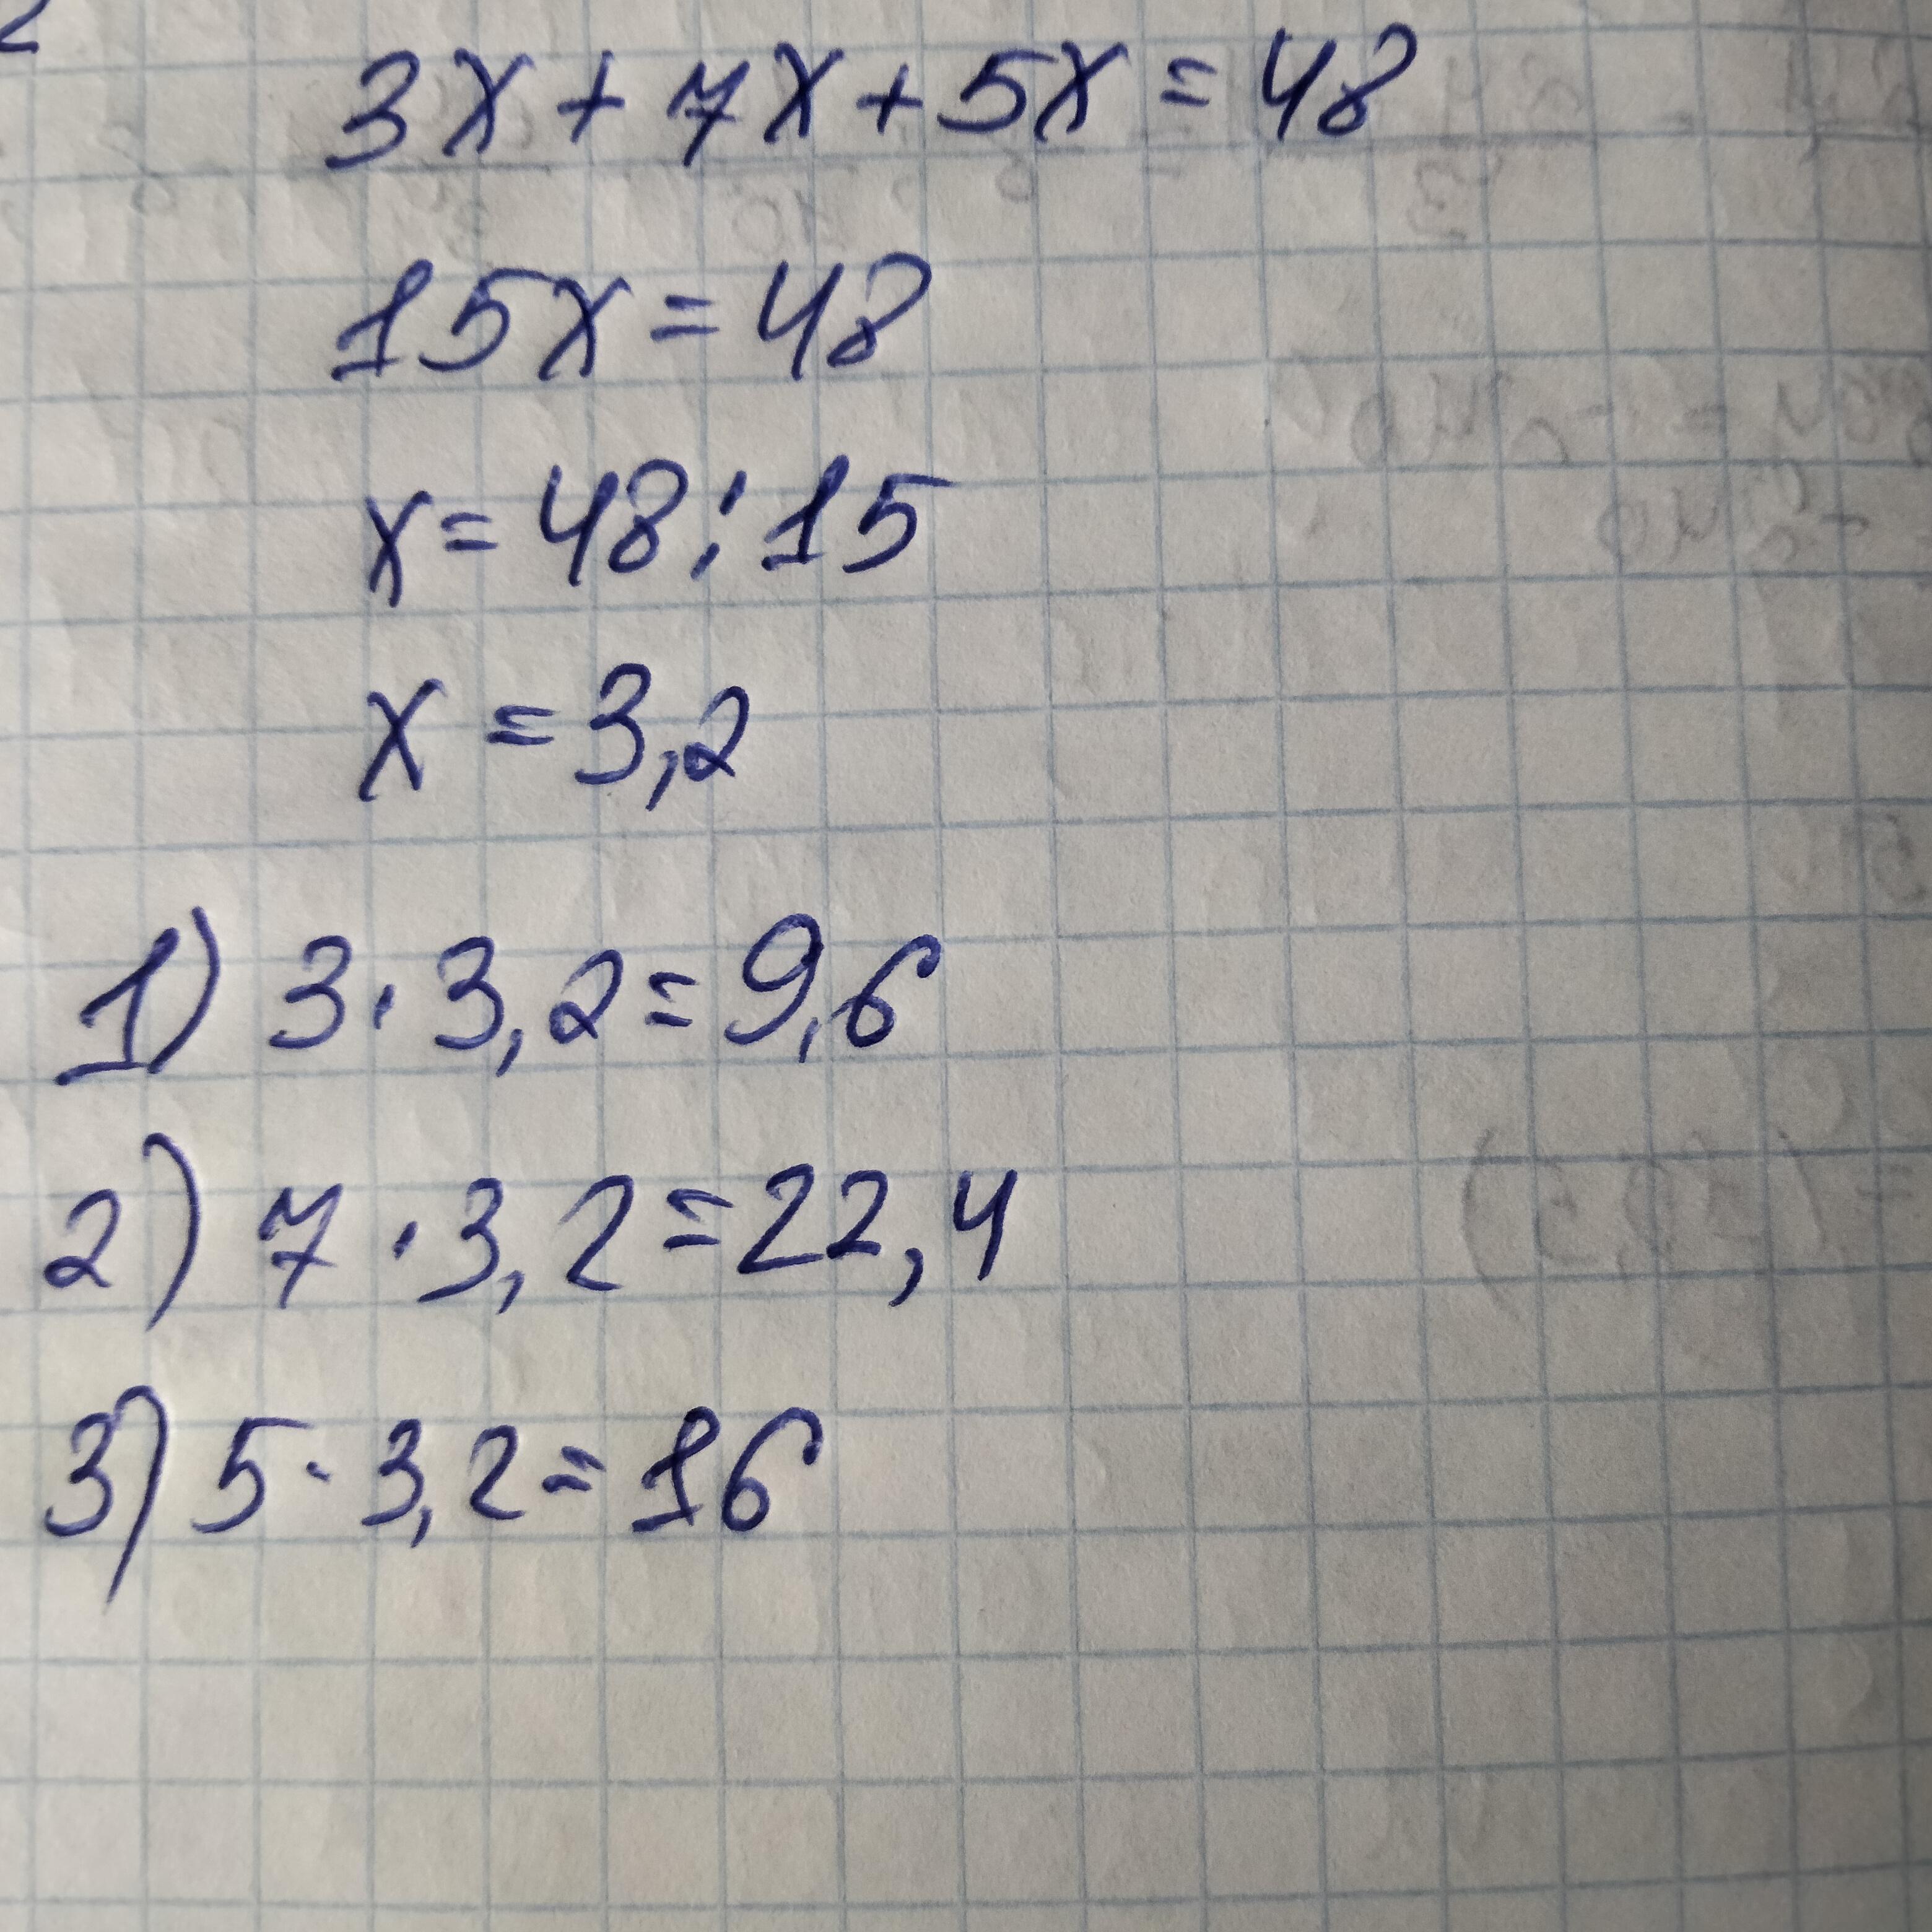 3x + 7x + 5x = 48
15x = 48
x = 48 : 15
x = 3,2
1) 3 · 3,2 = 9,6
2) 7 · 3,2 = 22,4
3) 5 · 3,2 = 16